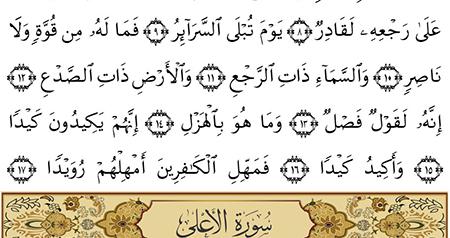 عَلَىٰ رَجْعِهِۦ لَقَادِرٌ ۝٨ يَوْمَ تُبْلَى ٱلسَّرَآئِرُ ۝٩ فَمَا لَهُۥ مِن قُوَّةٍ وَلَا
نَاصِرٍ ۝١٠ وَٱلسَّمَآءِ ذَاتِ ٱلرَّجْعِ ۝١١ وَٱلْأَرْضِ ذَاتِ ٱلصَّدْعِ ۝١٢
إِنَّهُۥ لَقَوْلٌ فَصْلٌ ۝١٣ وَمَا هُوَ بِٱلْهَزْلِ ۝١٤ إِنَّهُمْ يَكِيدُونَ كَيْدًا
۝١٥ وَأَكِيدُ كَيْدًا ۝١٦ فَمَهِّلِ ٱلْكَٰفِرِينَ أَمْهِلْهُمْ رُوَيْدًۢا ۝١٧
سُورَةُ الأَعْلَىٰ